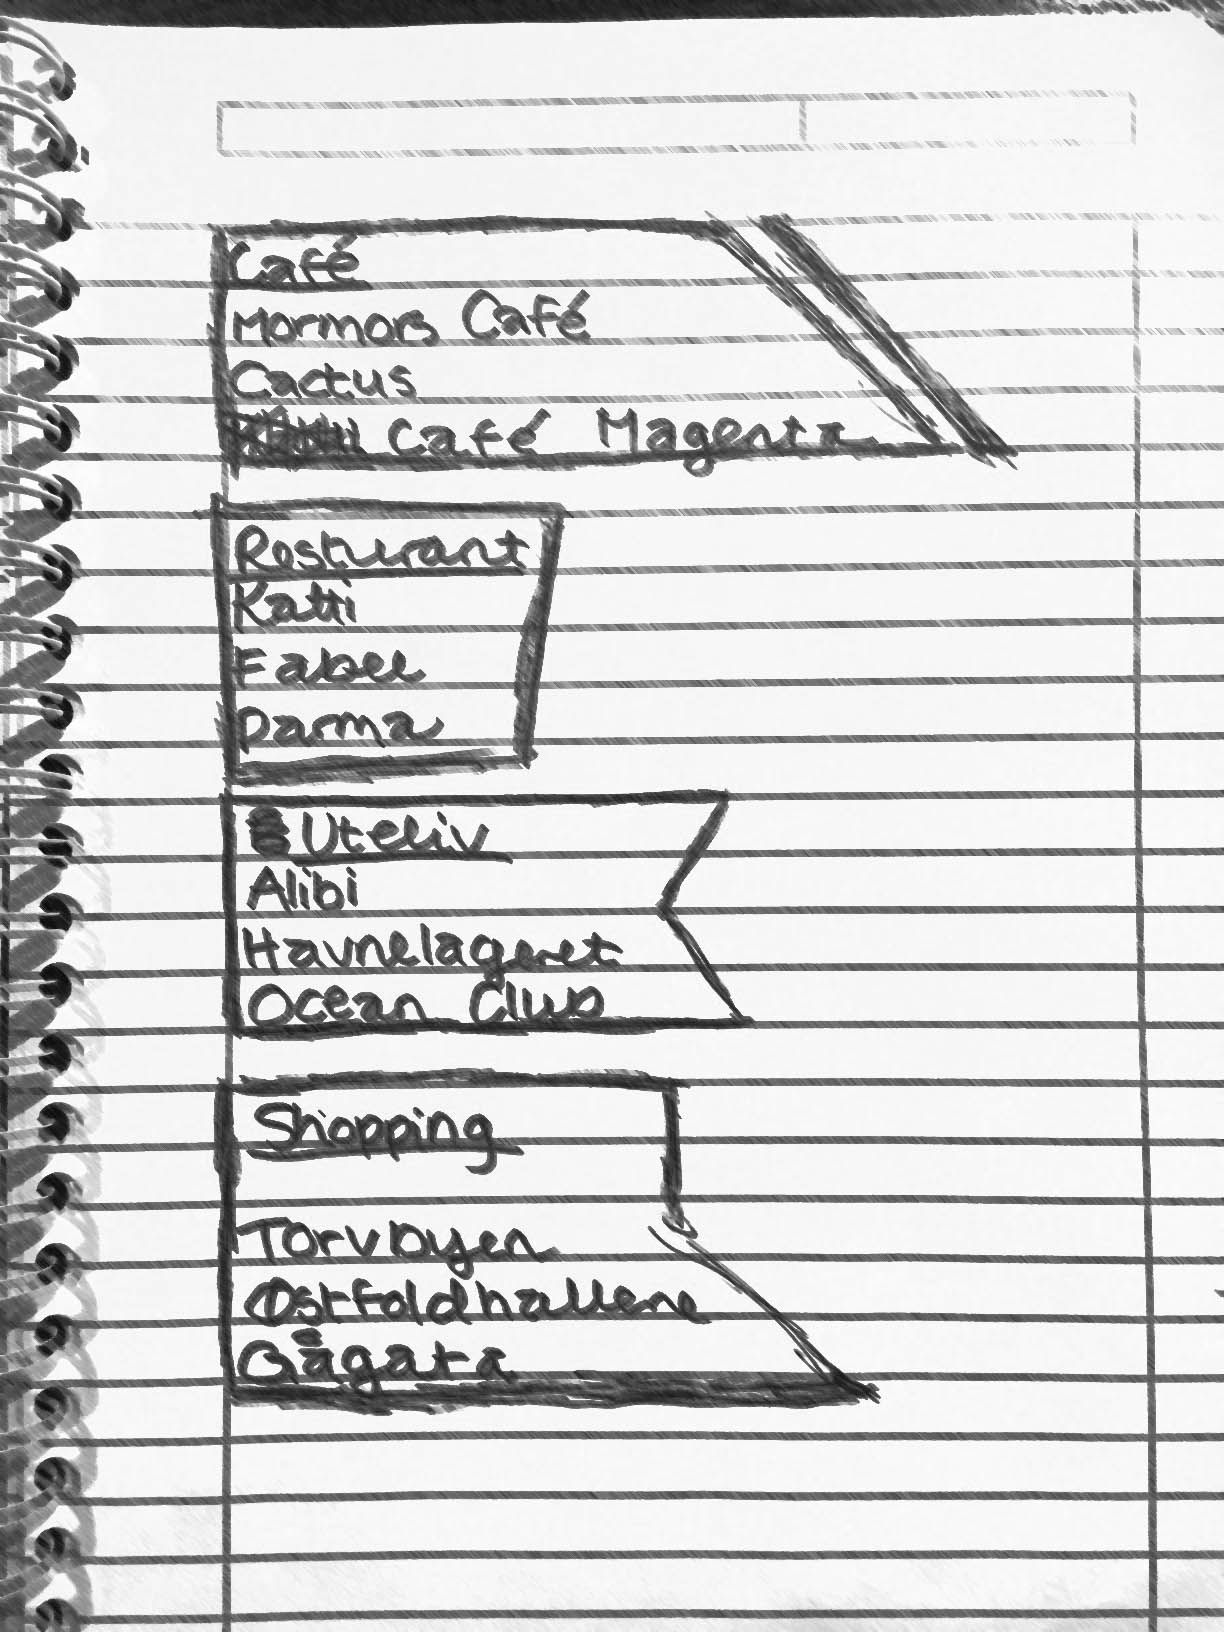 Café
Mormors Café
Cactus
Café Magenta
Resturant
Katti
Fabel
Parma
Uteliv
Alibi
Havnelageret
Ocean Club
Shopping
Torvbyen
Østfoldhallene
Gågata